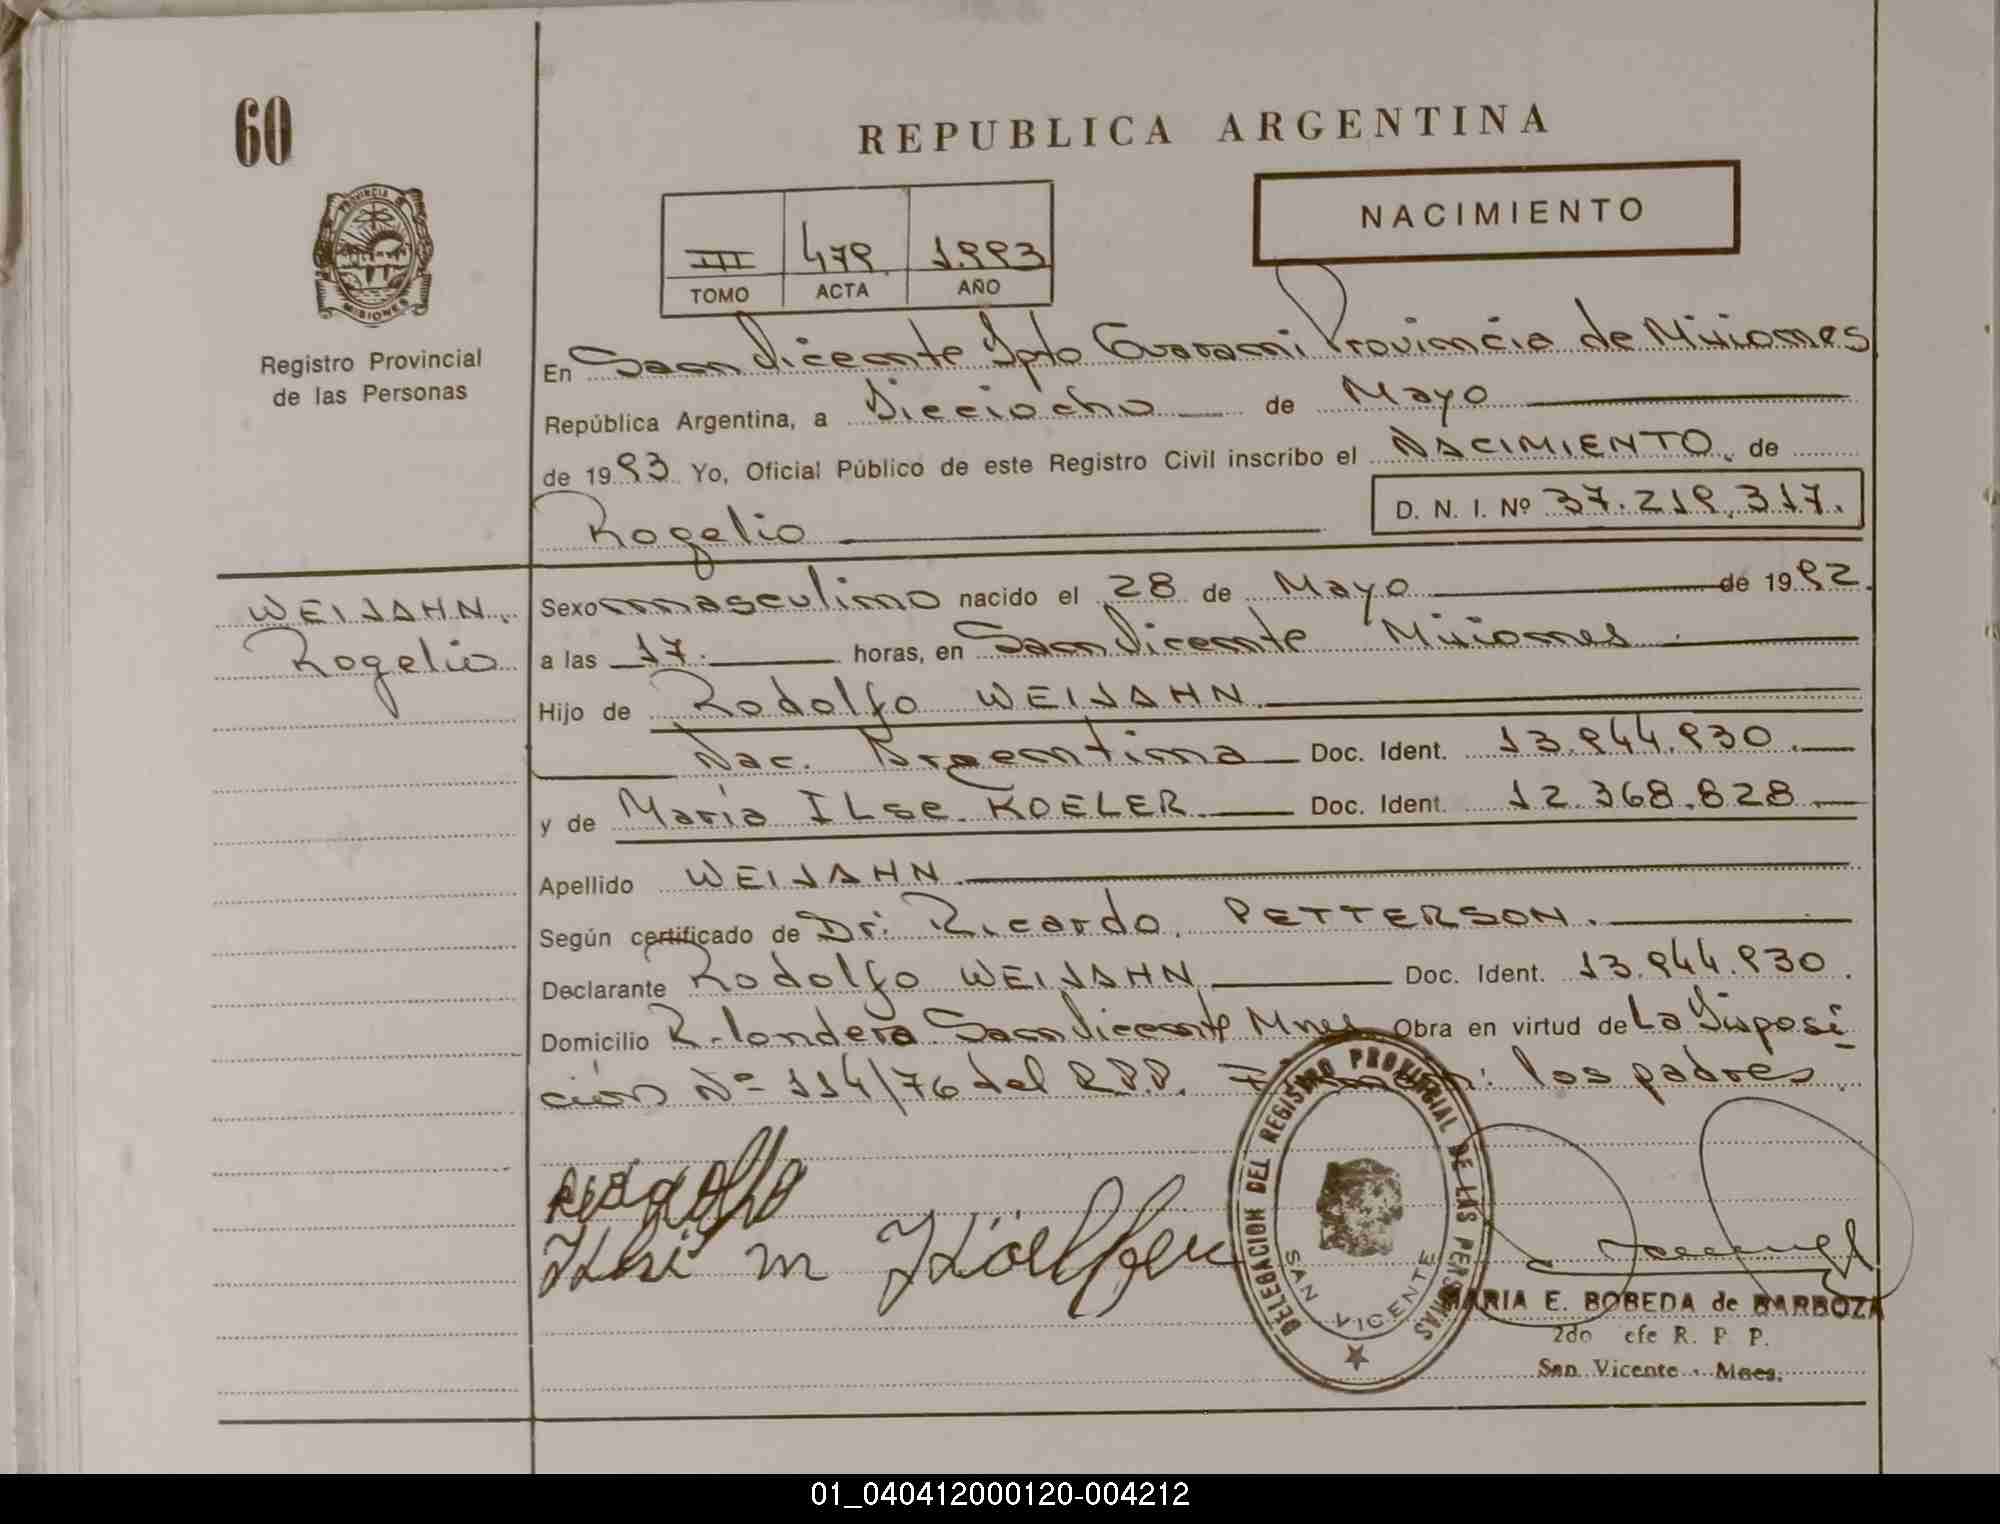 60
REPUBLICA ARGENTINA
NACIMIENTO
III 479 1.993
TOMO ACTA AÑO
PROVINCIA DE MISIONES
Registro Provincial
de las Personas
En San Vicente Dpto Guarani Provincia de Misiones
República Argentina, a Dieciocho de Mayo
de 1993 Yo, Oficial Público de este Registro Civil inscribo el NACIMIENTO de
D. N. I. Nº 37.219.317.
Rogelio
WEIJAHN.
Rogelio
Sexo masculino nacido el 28 de Mayo de 1992.
a las 17. horas, en San Vicente Misiones
Hijo de Rodolfo WEIJAHN.
Nac. Argentina Doc. Ident. 13.944.930.
y de María ILse KOELER. Doc. Ident. 12.368.828.
Apellido WEIJAHN.
Según certificado de Dr. Ricardo PETTERSON.
Declarante Rodolfo WEIJAHN Doc. Ident. 13.944.930.
Domicilio R. londera San Vicente Mnes Obra en virtud de La Disposi
ción Nº 114/76 del R.P.P. Firman: los padres.
DELEGACION DEL REGISTRO PROVINCIAL DE LAS PERSONAS
SAN VICENTE
MARIA E. BOBEDA de BARBOZA
2do efe R. P P.
San Vicente - Mnes.
01_040412000120-004212